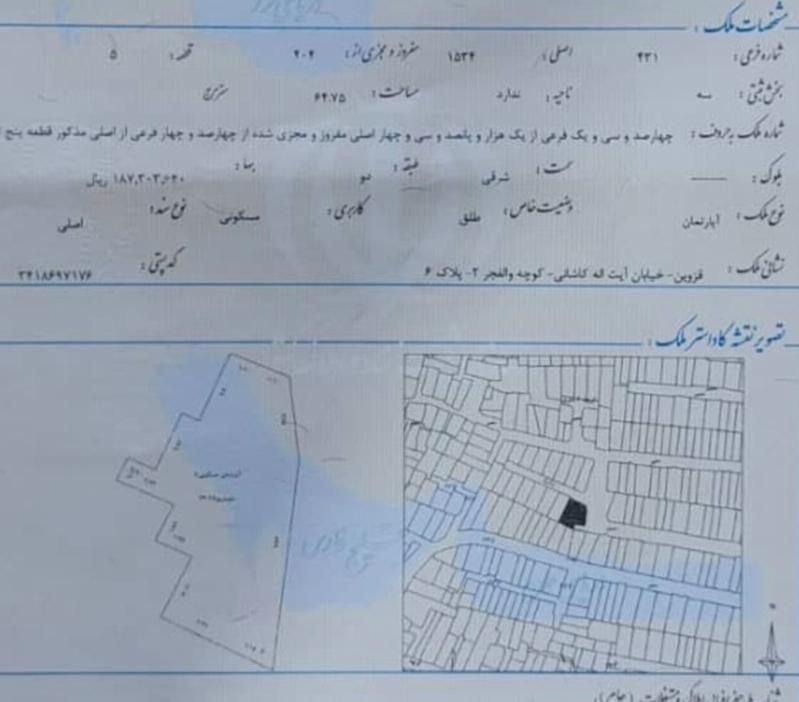 مشخصات ملک :
شماره فرعی : ۴۳۱ اصلی : ۱۵۳۴ مفروز و مجزی از : ۴۰۴ قطعه : ۵
بخش ثبتی : سه ناحیه : ندارد مساحت : ۶۴.۷۵ مترمربع
شماره ملک به حروف : چهارصد و سی و یک فرعی از یک هزار و پانصد و سی و چهار اصلی مفروز و مجزی شده از چهارصد و چهار فرعی از اصلی مذکور قطعه پنج
بلوک : —— سمت : شرقی طبقه : دو بها : ۱۸۷,۳۰۳,۶۴۰ ریال
نوع ملک : آپارتمان وضعیت خاص : طلق کاربری : مسکونی نوع سند : اصلی
نشانی ملک : قزوین- خیابان آیت اله کاشانی- کوچه والفجر ۲- پلاک ۶ کدپستی : ۳۴۱۸۶۹۷۱۷۶
تصویر نقشه کاداستر ملک :